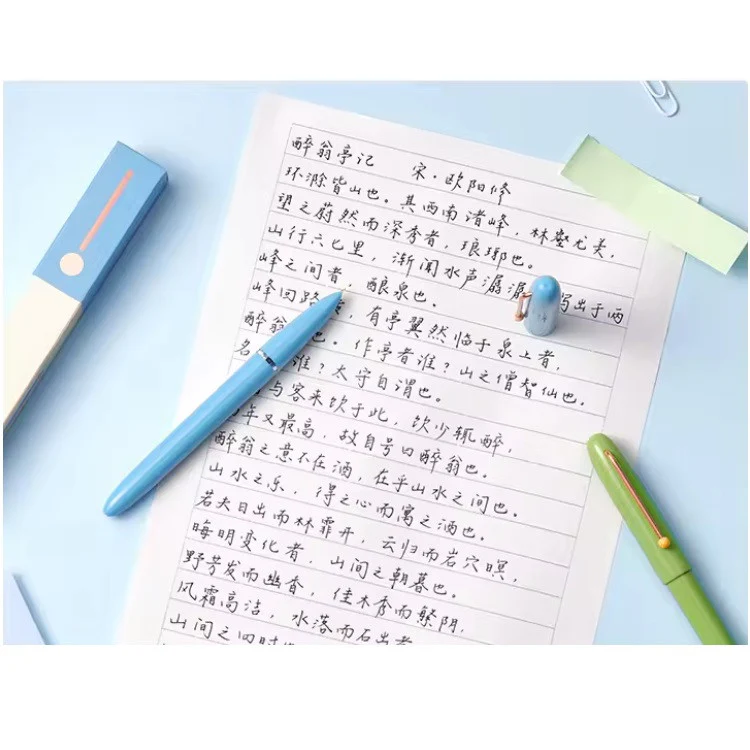 醉翁亭记 宋·欧阳修
环滁皆山也。其西南诸峰，林壑尤美，
望之蔚然而深秀者，琅琊也。
山行六七里，渐闻水声潺 出于两
峰之间者，酿泉也。
峰回路 ，有亭翼然临于泉上者，
醉翁 也。作亭者谁？山之僧智仙也。
名 谁？太守自谓也。
与客来饮于此，饮少辄醉，
年又最高，故自号曰醉翁也。
醉翁之意不在酒，在乎山水之间也。
山水之乐，得之心而寓之酒也。
若夫日出而林霏开，云归而岩穴暝，
晦明变化者，山间之朝暮也。
野芳发而幽香，佳木秀而繁阴，
风霜高洁，水落而石出者
山间之四时